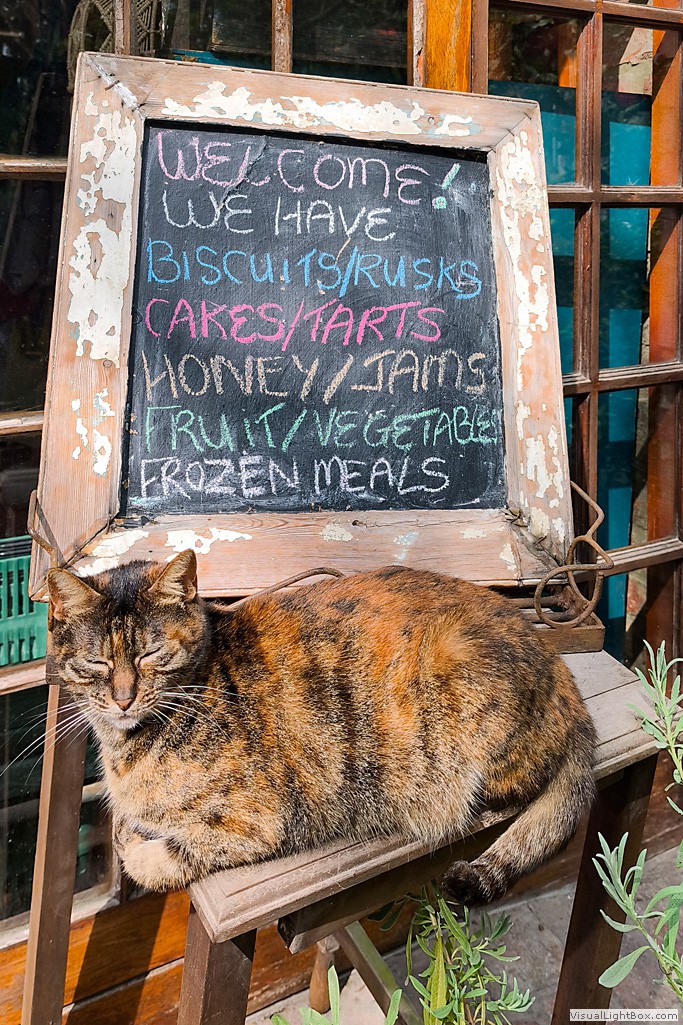 WELCOME!
WE HAVE
BISCUITS/RUSKS
CAKES/TARTS
HONEY/JAMS
FRUIT/VEGETABLES
FROZEN MEALS
VisualLightBox.com